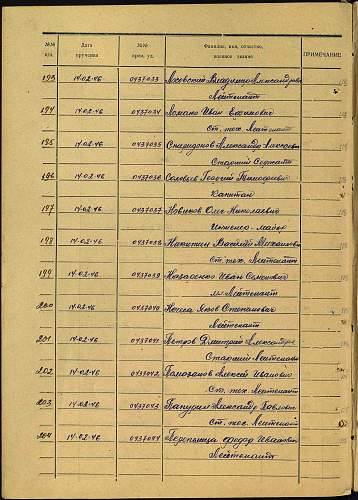 №№ п/п Дата вручения №№ врем. уд. Фамилия, имя, отчество, воинское звание ПРИМЕЧАНИЕ
193 14.02.46 0437033 Владимир Александрович
Лейтенант
194 14.02.46 0437034 Иван Ефимович
Ст. тех. Лейтенант
195 14.02.46 0437035 Спиридонов Александр
Старший Сержант
196 14.02.46 0437036 Соловьев Георгий Тимофеевич
Капитан
197 14.02.46 0437037 Новиков Олег Николаевич
Инженер-майор
198 14.02.46 0437038 Никитин Василий Михайлович
Ст. тех. Лейтенант
199 14.02.46 0437039 Назаренко Иван Семенович
мл. Лейтенант
200 14.02.46 0437040 Яков Степанович
Лейтенант
201 14.02.46 0437041 Петров Дмитрий Александрович
Старший Лейтенант
202 14.02.46 0437042 Алексей Иванович
Ст. тех. Лейтенант
203 14.02.46 0437043 Александр Павлович
Ст. тех. Лейтенант
204 14.02.46 0437044 Перепелица Федор Иванович
Лейтенант